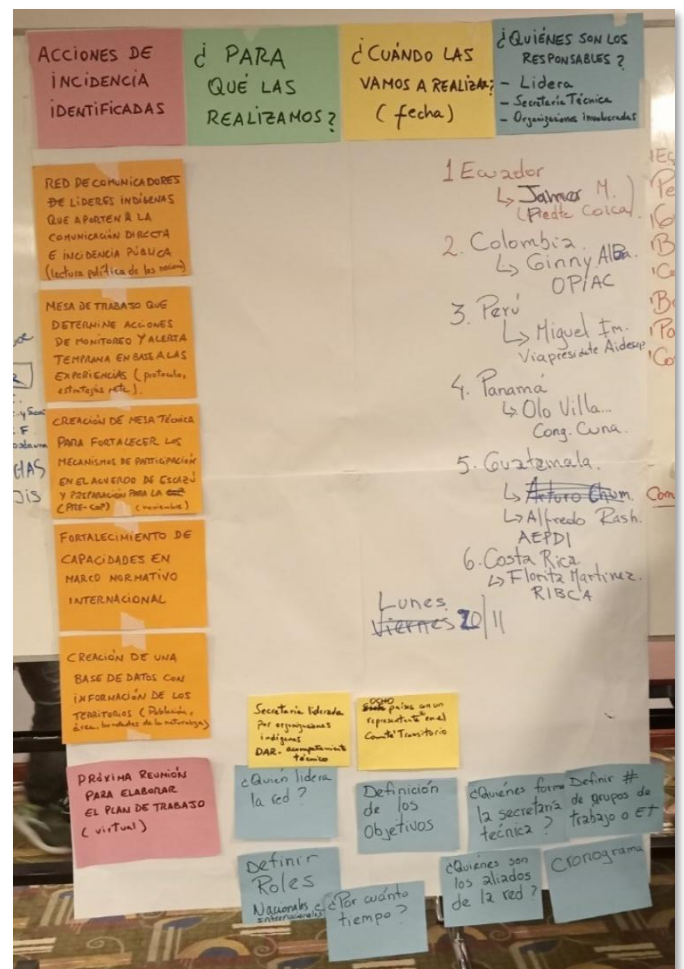 ACCIONES DE
INCIDENCIA
IDENTIFICADAS
¿ PARA
QUÉ LAS
REALIZAMOS?
¿CUÁNDO LAS
VAMOS A REALIZAR?
(fecha)
¿QUIÉNES SON LOS
RESPONSABLES?
- Lidera
- Secretaría Técnica
- Organizaciones involucradas
RED DE COMUNICADORES
DE LIDERES INDÍGENAS
QUE APORTEN A LA
COMUNICACIÓN DIRECTA
E INCIDENCIA PÚBLICA
(lectura política de las)
MESA DE TRABAJO QUE
DETERMINE ACCIONES
DE MONITOREO Y ALERTA
TEMPRANA EN BASE A LAS
EXPERIENCIAS (protocolo,
estrategias, etc).
CREACIÓN DE MESA TÉCNICA
PARA FORTALECER LOS
MECANISMOS DE PARTICIPACIÓN
EN EL ACUERDO DE ESCAZÚ
Y PREPARACIÓN PARA LA
(PRE-COP) (noviembre)
FORTALECIMIENTO DE
CAPACIDADES EN
MARCO NORMATIVO
INTERNACIONAL
CREACIÓN DE UNA
BASE DE DATOS CON
INFORMACIÓN DE LOS
TERRITORIOS (Población,
área, bondades de la naturaleza)
PRÓXIMA REUNIÓN
PARA ELABORAR
EL PLAN DE TRABAJO
(virtual)
1 Ecuador
↳ M.
2. Colombia.
↳ Ginny Alba.
OPIAC
3. Perú
↳ Miguel Im.
Aidesep
4. Panamá
↳ Olo Villa...
Cong. Cuna.
5. Guatemala.
↳ Arturo Chum.
↳ Alfredo Rash.
AEPDI
6. Costa Rica
↳ Florita Martinez.
RIBCA
Lunes
Viernes 20/11
Secretaría liderada
por organizaciones
indígenas
DAR - acompañamiento
técnico
OCHO
países con un
representante en el
Comité Transitorio
¿Quién lidera
la red?
Definición
de los
Objetivos
¿Quiénes forma
la secretaria
tecnica?
Definir #
de grupos de
trabajo o ET
Definir
Roles
Nacionales e
internacionales
¿Por cuánto
tiempo?
¿Quiénes son
los aliados
de la red?
Cronograma